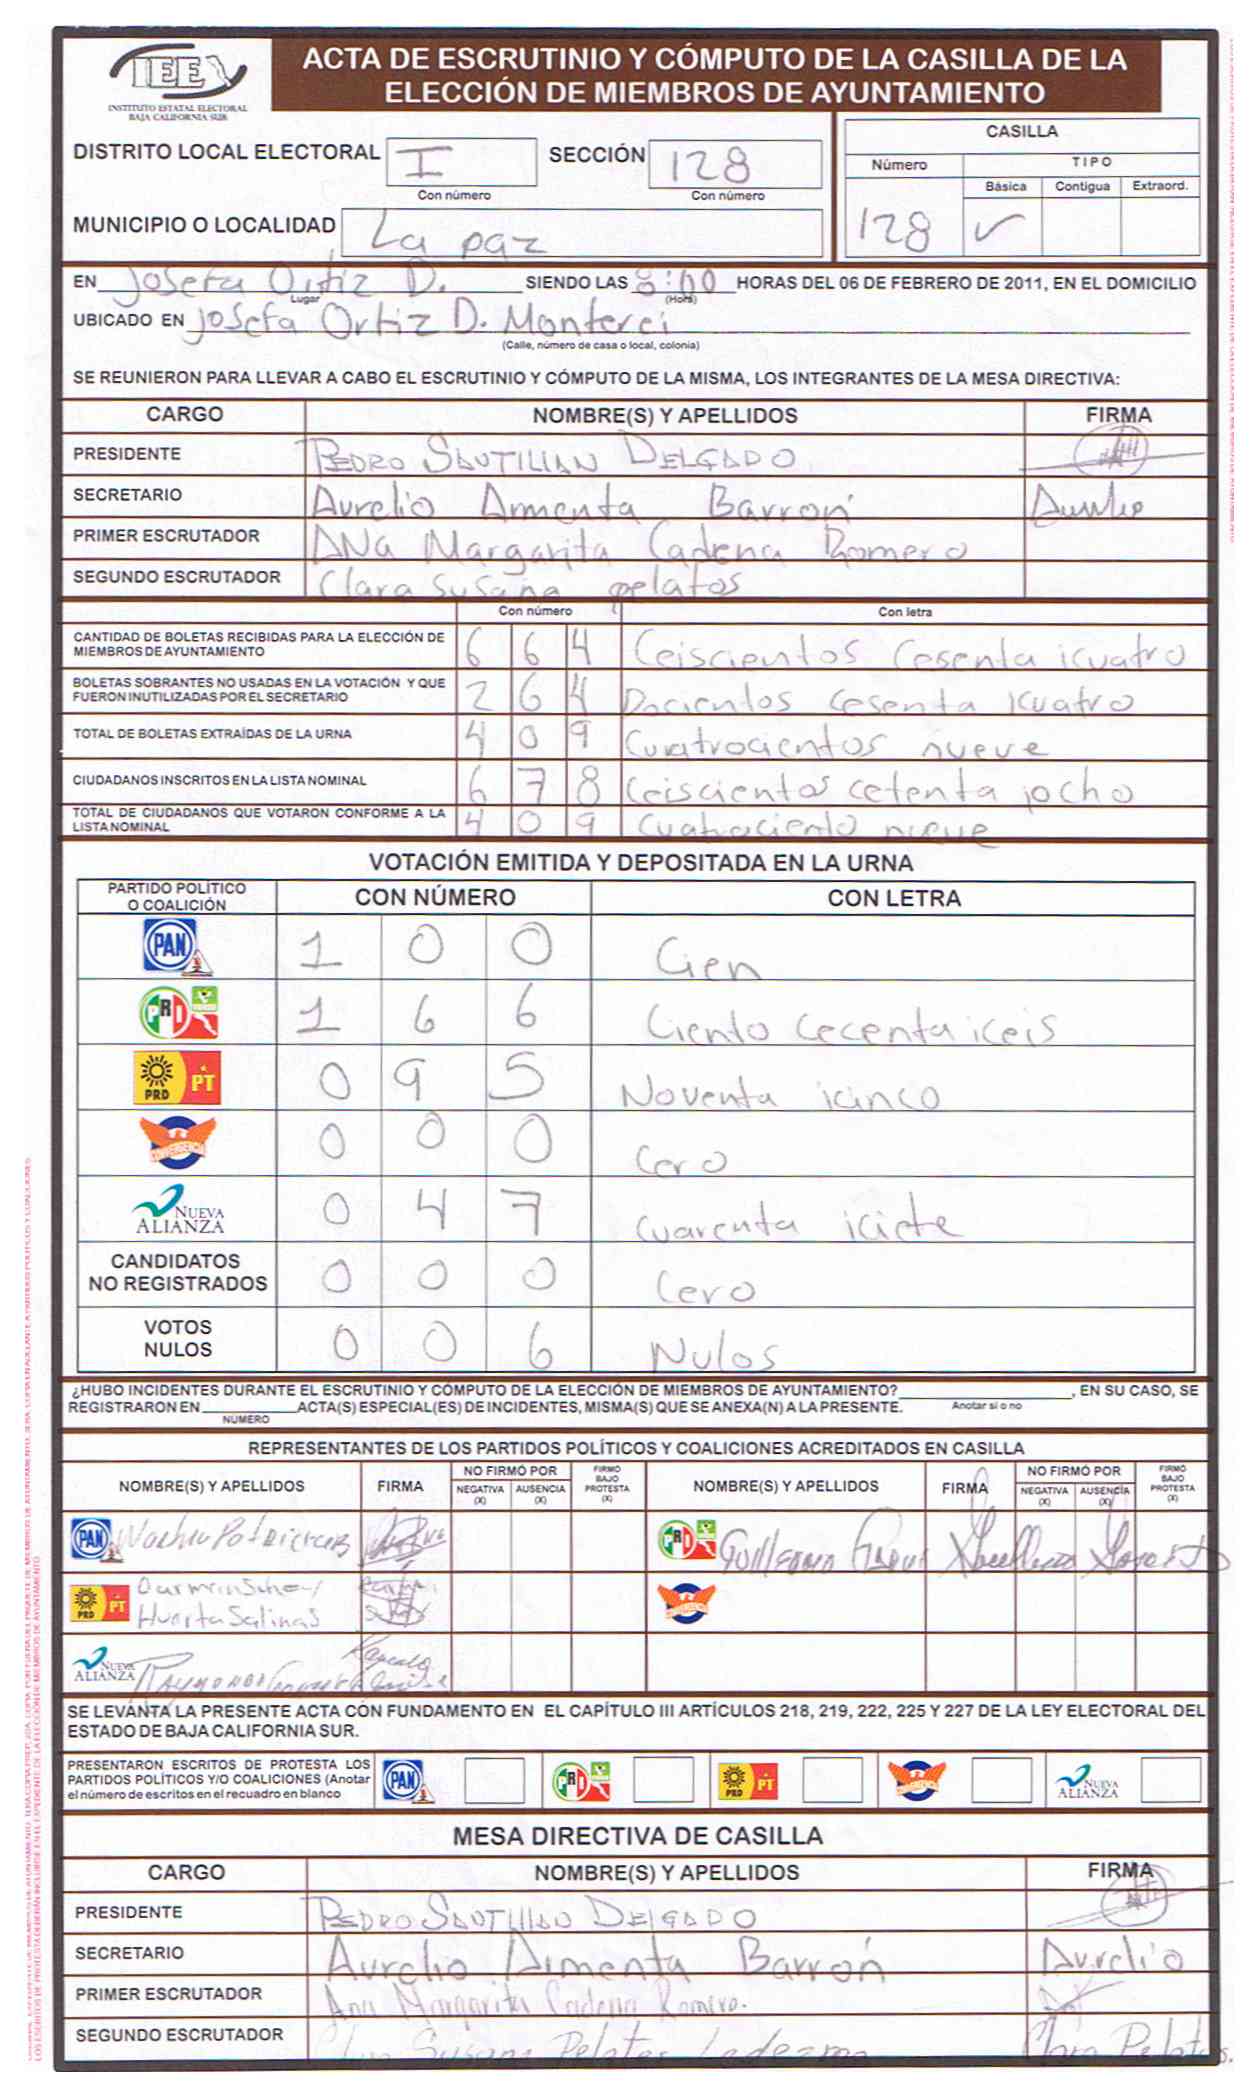 IEE
INSTITUTO ESTATAL ELECTORAL
BAJA CALIFORNIA SUR
ACTA DE ESCRUTINIO Y CÓMPUTO DE LA CASILLA DE LA
ELECCIÓN DE MIEMBROS DE AYUNTAMIENTO
DISTRITO LOCAL ELECTORAL I SECCIÓN 128
Con número Con número
MUNICIPIO O LOCALIDAD La paz
CASILLA
Número TIPO
Básica Contigua Extraord.
128 ✓
EN Josefa Ortiz D. SIENDO LAS 8:00 HORAS DEL 06 DE FEBRERO DE 2011, EN EL DOMICILIO
Lugar (Hora)
UBICADO EN josefa Ortiz D. Monterei
(Calle, número de casa o local, colonia)
SE REUNIERON PARA LLEVAR A CABO EL ESCRUTINIO Y CÓMPUTO DE LA MISMA, LOS INTEGRANTES DE LA MESA DIRECTIVA:
CARGO NOMBRE(S) Y APELLIDOS FIRMA
PRESIDENTE PEDRO SANTILLAN DELGADO
SECRETARIO Aurelio Armenta Barrón Aurelio
PRIMER ESCRUTADOR ANA Margarita Cadena Romero
SEGUNDO ESCRUTADOR Clara Susana pelatos
Con número Con letra
CANTIDAD DE BOLETAS RECIBIDAS PARA LA ELECCIÓN DE
MIEMBROS DE AYUNTAMIENTO 6 6 4 Ceiscientos Cesenta icuatro
BOLETAS SOBRANTES NO USADAS EN LA VOTACIÓN Y QUE
FUERON INUTILIZADAS POR EL SECRETARIO 2 6 4 Docientos cesenta icuatro
TOTAL DE BOLETAS EXTRAÍDAS DE LA URNA 4 0 9 Cuatrocientos nueve
CIUDADANOS INSCRITOS EN LA LISTA NOMINAL 6 7 8 Ceiscientos cetenta iocho
TOTAL DE CIUDADANOS QUE VOTARON CONFORME A LA
LISTA NOMINAL 4 0 9 Cuatrociento nueve
VOTACIÓN EMITIDA Y DEPOSITADA EN LA URNA
PARTIDO POLÍTICO
O COALICIÓN CON NÚMERO CON LETRA
PAN 1 0 0 Cien
PRI 1 6 6 Ciento cecenta iceis
PRD PT 0 9 5 Noventa icinco
CONVERGENCIA 0 0 0 Cero
NUEVA
ALIANZA 0 4 7 Cuarenta iciete
CANDIDATOS
NO REGISTRADOS 0 0 0 Cero
VOTOS
NULOS 0 0 6 Nulos
¿HUBO INCIDENTES DURANTE EL ESCRUTINIO Y CÓMPUTO DE LA ELECCIÓN DE MIEMBROS DE AYUNTAMIENTO? , EN SU CASO, SE
REGISTRARON EN ACTA(S) ESPECIAL(ES) DE INCIDENTES, MISMA(S) QUE SE ANEXA(N) A LA PRESENTE. Anotar si o no
NÚMERO
REPRESENTANTES DE LOS PARTIDOS POLÍTICOS Y COALICIONES ACREDITADOS EN CASILLA
NOMBRE(S) Y APELLIDOS FIRMA NO FIRMÓ POR NEGATIVA (X) AUSENCIA (X) FIRMÓ BAJO PROTESTA (X) NOMBRE(S) Y APELLIDOS FIRMA NO FIRMÓ POR NEGATIVA (X) AUSENCIA (X) FIRMÓ BAJO PROTESTA (X)
PAN
PRI Guillermo
PRD PT
Huerta Salinas
CONVERGENCIA
NUEVA
ALIANZA
SE LEVANTA LA PRESENTE ACTA CON FUNDAMENTO EN EL CAPÍTULO III ARTÍCULOS 218, 219, 222, 225 Y 227 DE LA LEY ELECTORAL DEL
ESTADO DE BAJA CALIFORNIA SUR.
PRESENTARON ESCRITOS DE PROTESTA LOS
PARTIDOS POLÍTICOS Y/O COALICIONES (Anotar
el número de escritos en el recuadro en blanco
PAN PRI PRD PT CONVERGENCIA NUEVA ALIANZA
MESA DIRECTIVA DE CASILLA
CARGO NOMBRE(S) Y APELLIDOS FIRMA
PRESIDENTE PEDRO SANTILLAN DELGADO
SECRETARIO Aurelio Armenta Barrón Aurelio
PRIMER ESCRUTADOR Ana Margarita Cadena Romero.
SEGUNDO ESCRUTADOR Clara Susana Pelatos Ledezma Clara Pelatos.